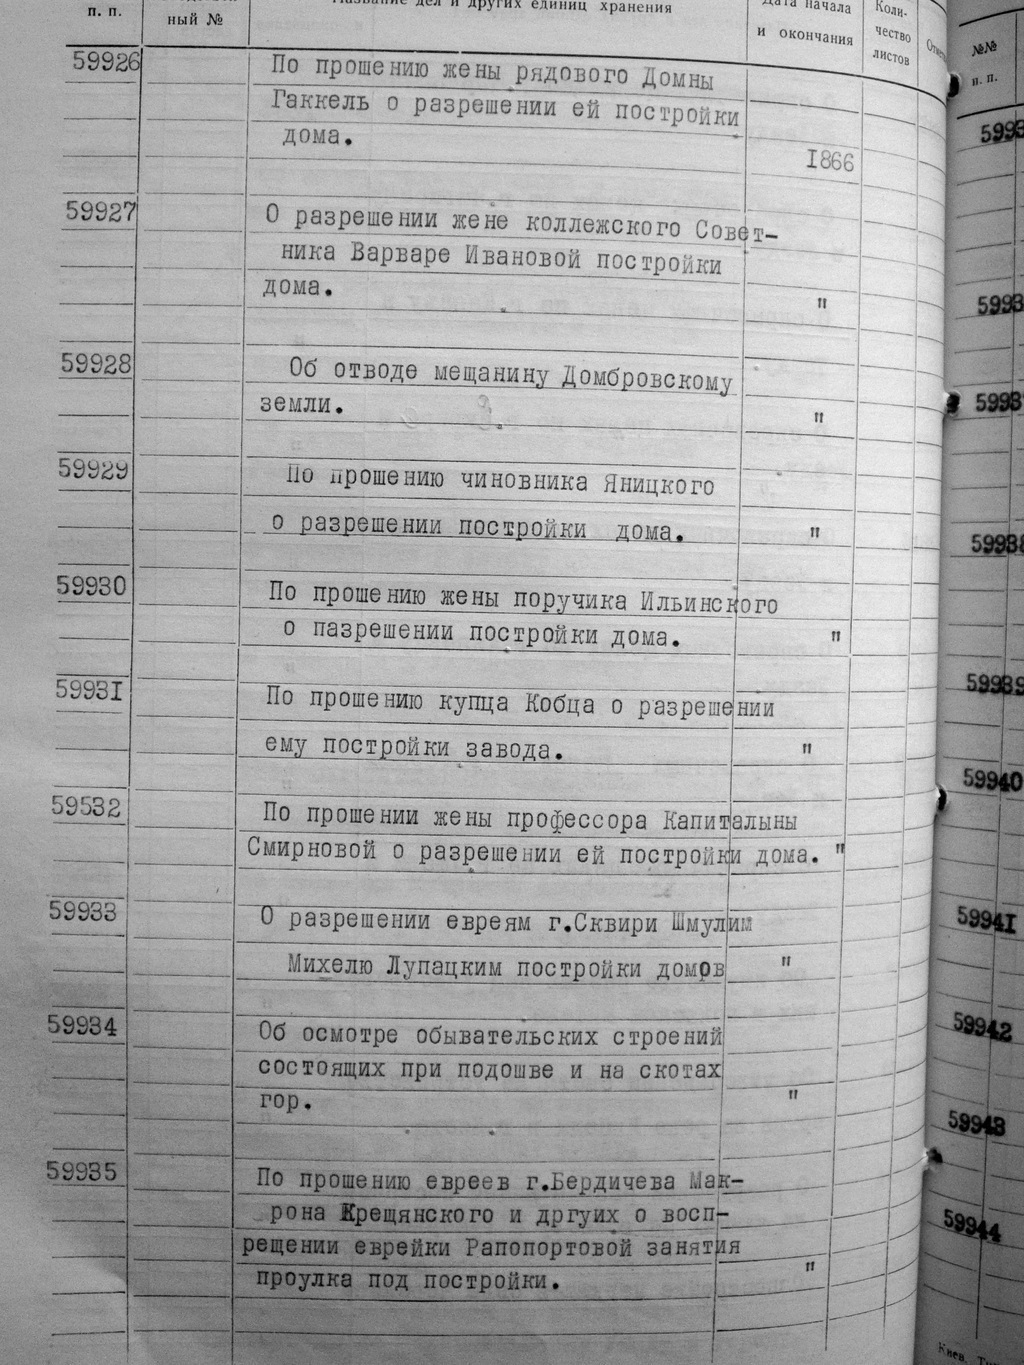 п. п.
ный №
Название дел и других единиц хранения
Дата начала
и окончания
Коли-
чество
листов
59926
По прошению жены рядового Домны
Гаккель о разрешении ей постройки
дома.
1866
59927
О разрешении жене коллежского Совет-
ника Варваре Ивановой постройки
дома. "
59928
Об отводе мещанину Домбровскому
земли. "
59929
По прошению чиновника Яницкого
о разрешении постройки дома. "
59930
По прошению жены поручика Ильинского
о пазрешении постройки дома. "
59931
По прошению купца Кобца о разрешении
ему постройки завода. "
59532
По прошении жены профессора Капиталыны
Смирновой о разрешении ей постройки дома. "
59933
О разрешении евреям г.Сквири Шмулим
Михелю Лупацким постройки домов "
59934
Об осмотре обывательских строений
состоящих при подошве и на скотах
гор. "
59935
По прошению евреев г.Бердичева Мак-
рона Крещянского и дргуих о восп-
рещении еврейки Рапопортовой занятия
проулка под постройки. "
№№
п. п.
59938
59939
59940
59941
59942
59943
59944
Киев.